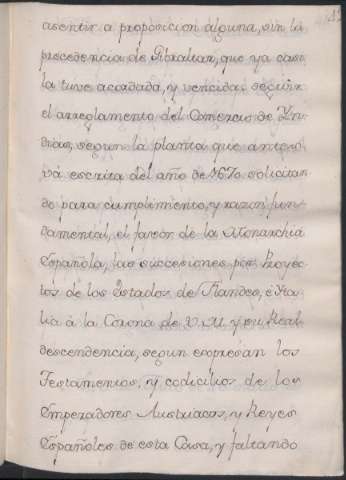 asentir a proposicion alguna, sin la
precedencia de Gibraltar, que ya casi
la tuve acordada, y vencida: seguir
el arreglamento del Comercio de Yn-
dias, segun la planta que antes
vá escrita del año de 1670 solicitan-
do para cumplimiento, y razon fun-
damental, el favor de la Monarchia
Española, las succesiones por Proyec-
tos de los Estados de Flandes, é Ita-
lia à la Corona de V. M. y su Real
descendencia, segun expresan los
Testamentos, y codicilos de los
Emperadores Austriacos, y Reyes
Españoles de esta Casa, y faltando